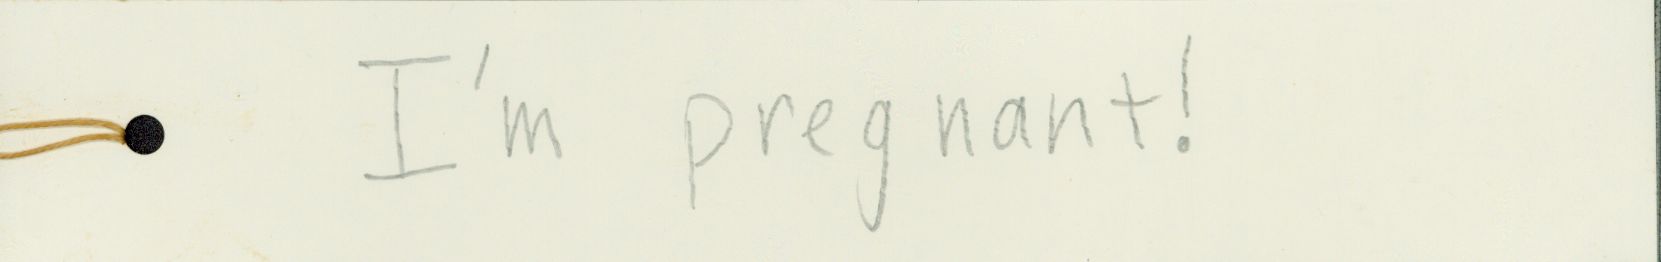 I'm pregnant!